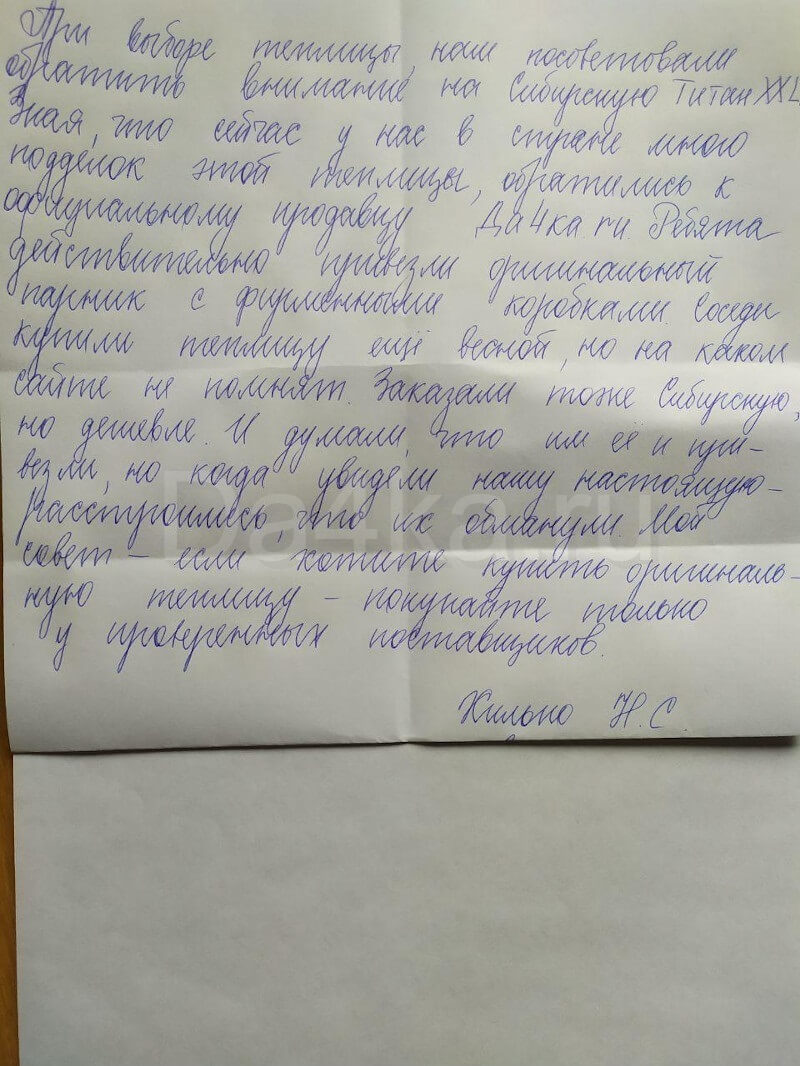 При выборе теплицы, нам посоветовали
обратить внимание на Сибирскую Титан XXL
Зная, что сейчас у нас в стране много
подделок этой теплицы, обратились к
официальному продавцу Да4ка.ru. Ребята
действительно привезли оригинальный
парник с фирменными коробками. Соседи
купили теплицу ещё весной, но на каком
сайте не помнят. Заказали тоже Сибирскую,
но дешевле. И думали, что им её и при-
везли, но когда увидели нашу настоящую-
расстроились, что их обманули. Мой
совет - если хотите купить оригиналь-
ную теплицу - покупайте только
у проверенных поставщиков.
Хилько Н.С.
Da4ka.ru